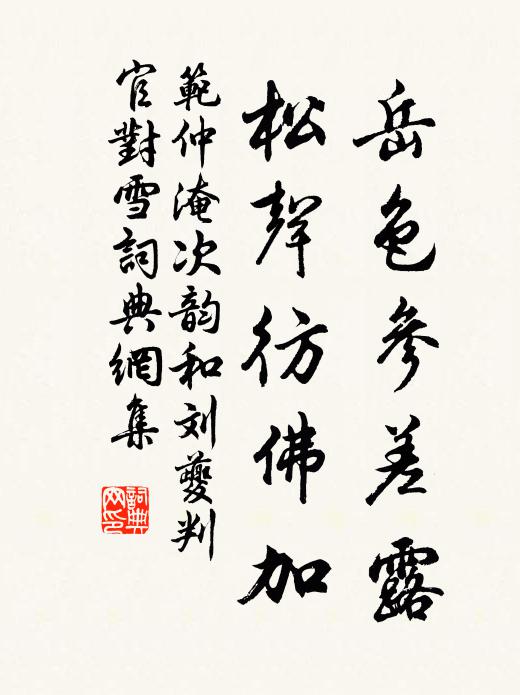 岳色參差露
松聲彷佛加
範仲淹次韵和刘夔判
官對雪詞典網集
詞典
网印